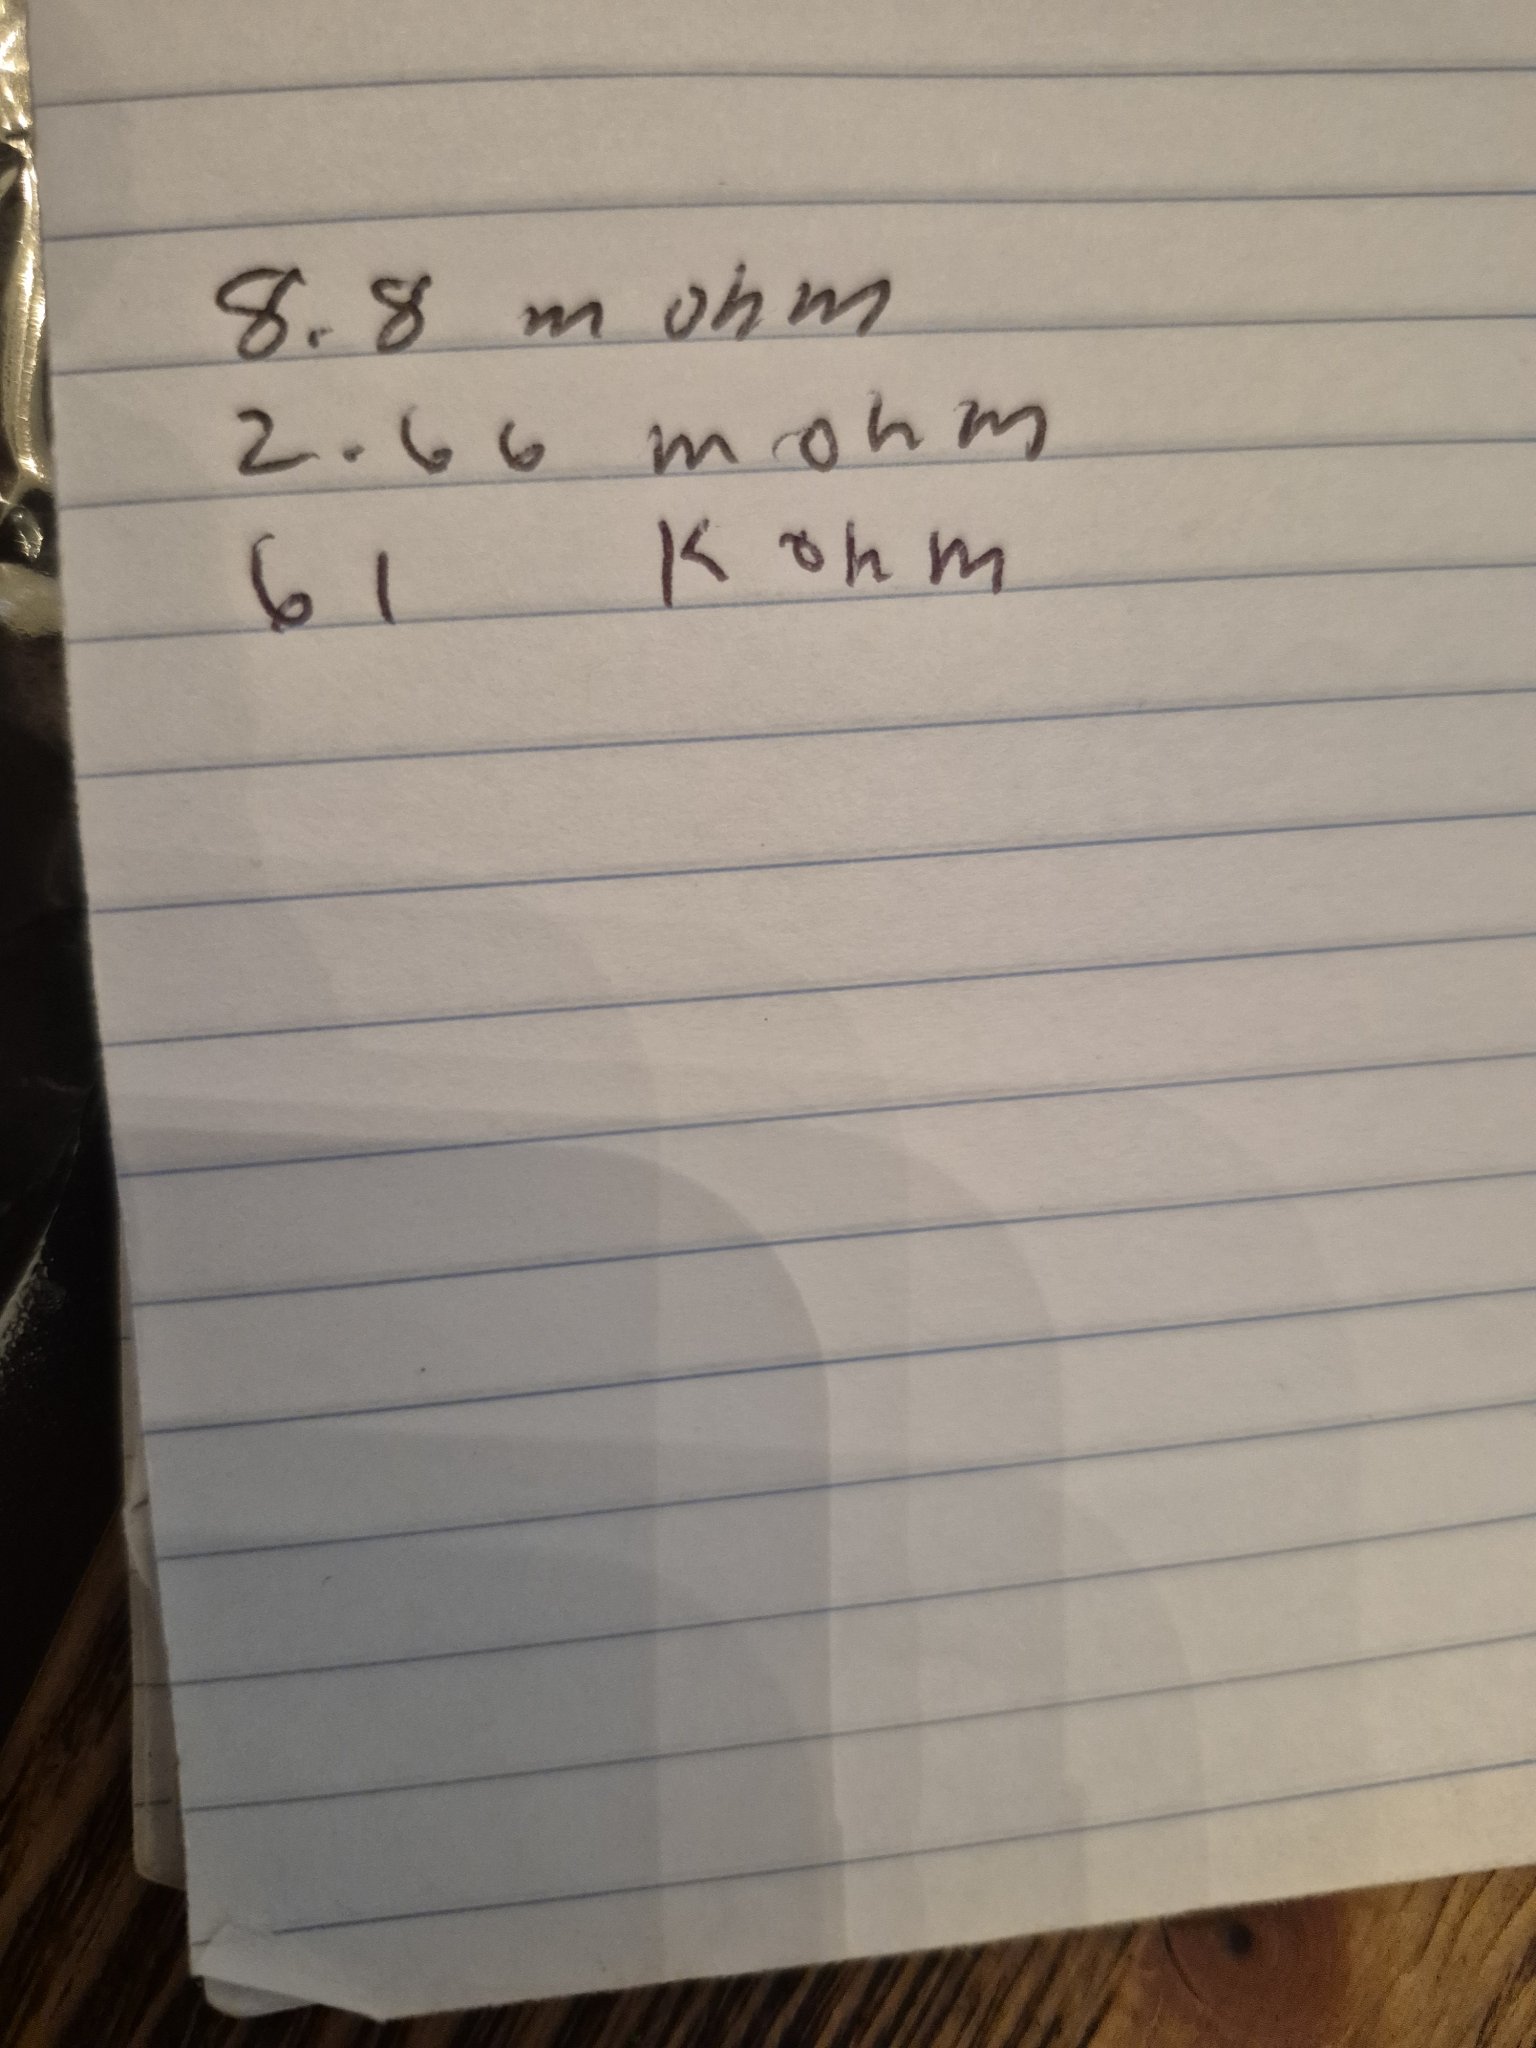 8.8 m ohm
2.66 m ohm
61 K ohm